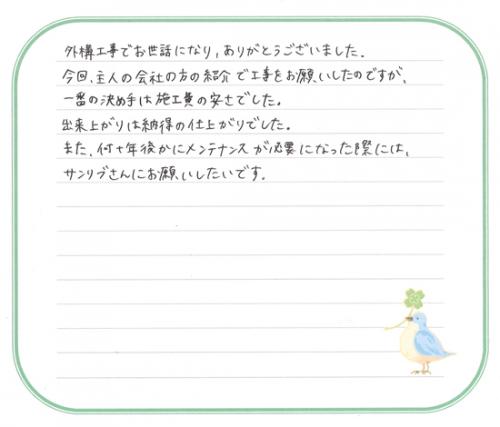 外構工事でお世話になり、ありがとうございました.
今回、主人の会社の方の紹介で工事をお願いしたのですが、
一番の決め手は施工費の安さでした。
出来上がりは納得の仕上がりでした。
また、何十年後かにメンテナンスが必要になった際には、
サンリブさんにお願いしたいです.